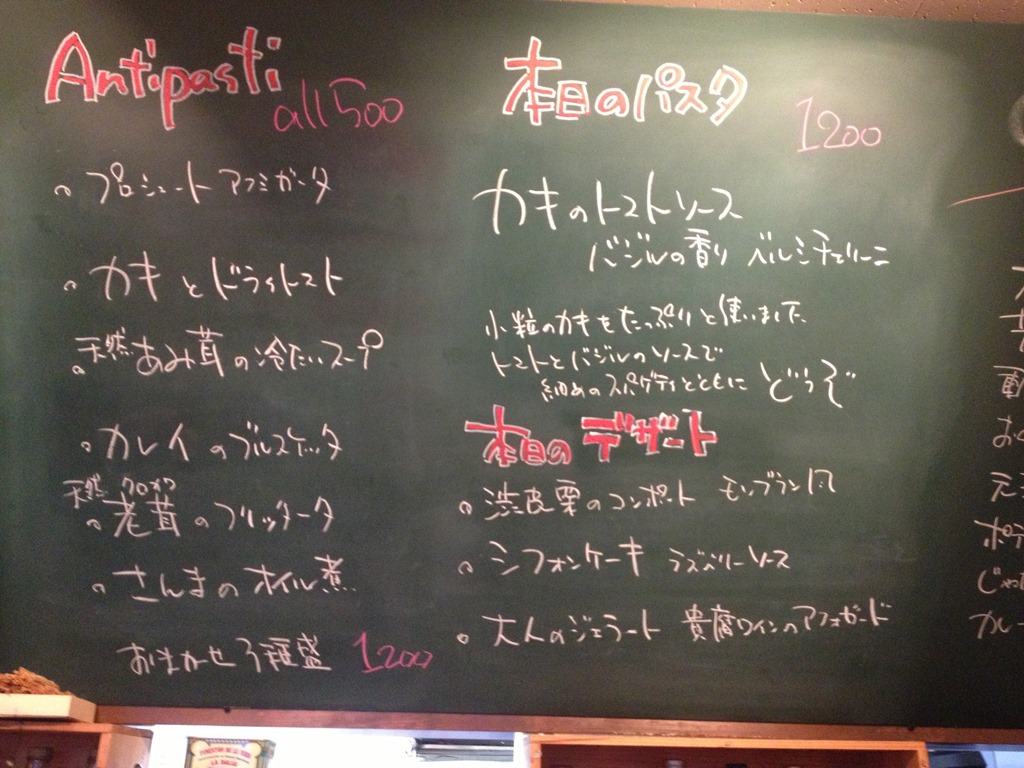 Antipasti
all 500
。プロシュート アフミガータ
。カキとドライトマト
天然
。あみ茸の冷たいスープ
。カレイのブルスケッタ
天然 クロカワ
。老茸のフリッタータ
。さんまのオイル煮
おまかせ3種盛 1200
本日のパスタ
1200
カキのトマトソース
バジルの香り ベルミチェリーニ
小粒のカキをたっぷりと使いました
トマトとバジルのソースで
細めのスパゲティとともに どうぞ
本日の デザート
。渋皮栗のコンポート モンブラン風
。シフォンケーキ ラズベリーソース
。大人のジェラート 貴腐ワインのアフォガード